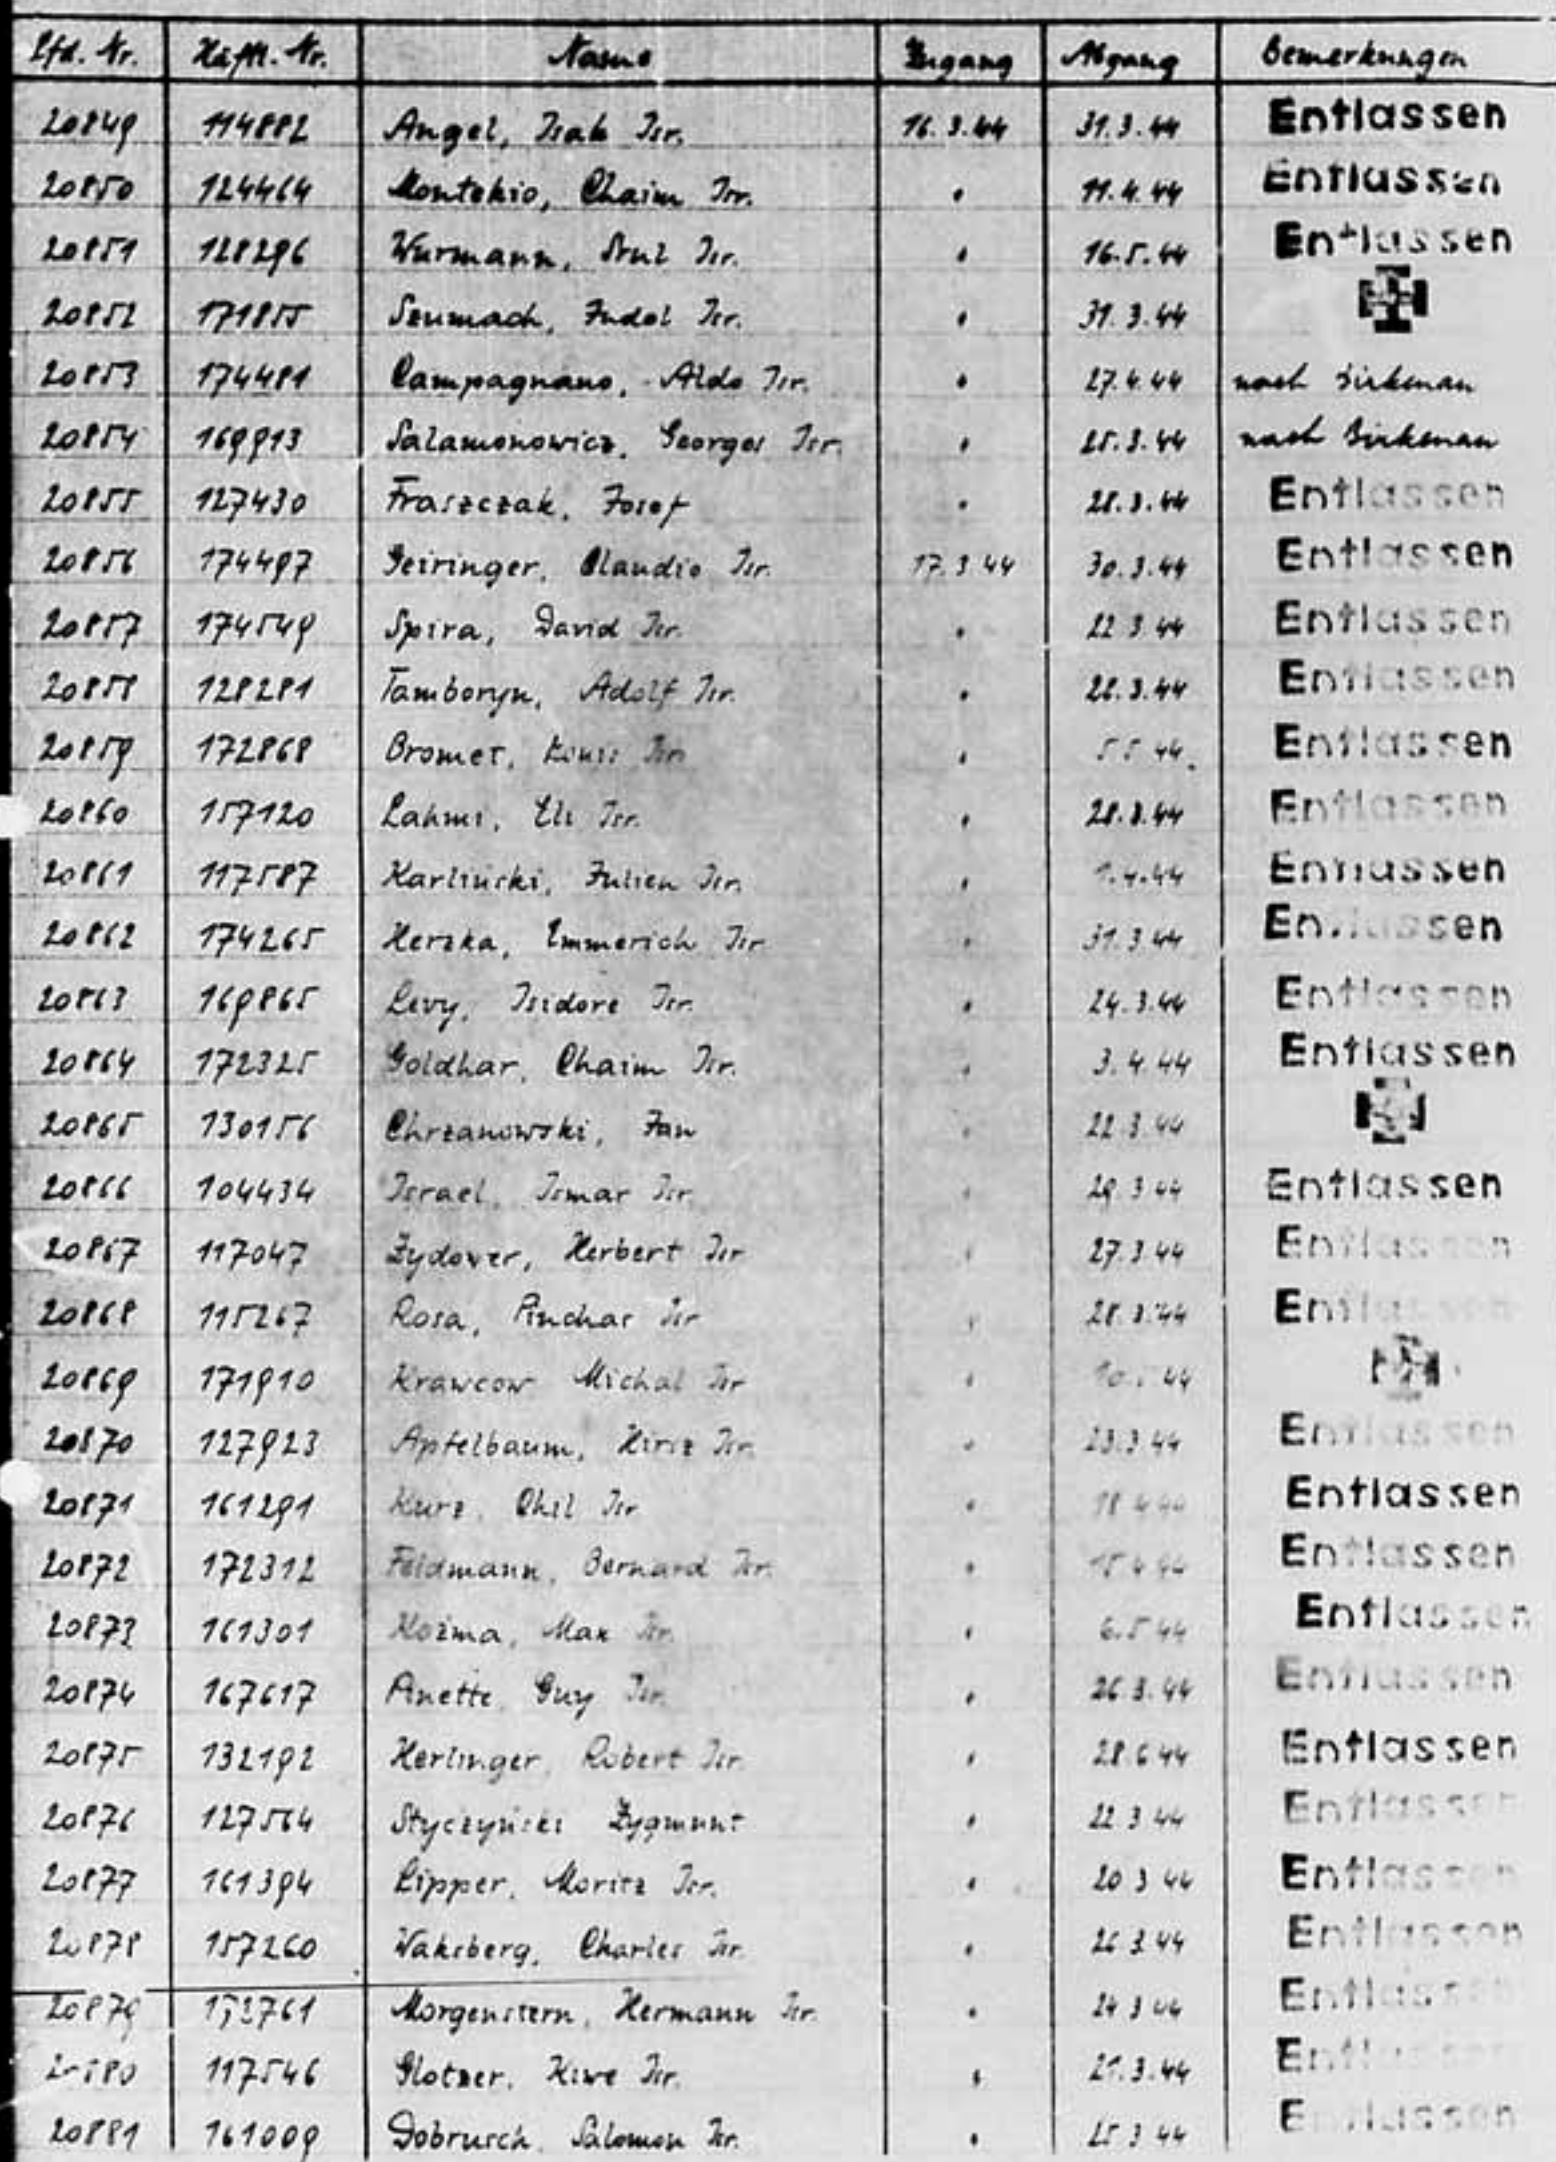 Lfd. Nr. Häftl.-Nr. Name Zugang Abgang Bemerkungen
20849 114882 Angel, Isak Isr. 16.3.44 31.3.44 Entlassen
20850 124464 Montekio, Chaim Isr. " 11.4.44 Entlassen
20851 128296 Wurmann, Srul Isr. " 16.5.44 Entlassen
20852 171855 Szumach, Judel Isr. " 31.3.44
20853 174481 Campagnano, Aldo Isr. " 27.4.44 nach Birkenau
20854 169913 Salamonowicz, Georges Isr. " 25.3.44 nach Birkenau
20855 127430 Fraszczak, Josef " 28.3.44 Entlassen
20856 174497 Geiringer, Claudio Isr. 17.3.44 30.3.44 Entlassen
20857 174549 Spira, David Isr. " 22.3.44 Entlassen
20858 128281 Tamboryn, Adolf Isr. " 28.3.44 Entlassen
20859 172868 Bromet, Louis Isr. " 5.5.44 Entlassen
20860 157120 Lahmi, Eli Isr. " 28.3.44 Entlassen
20861 117587 Karlinski, Julien Isr. " 1.4.44 Entlassen
20862 174265 Herzka, Emmerich Isr. " 31.3.44 Entlassen
20863 169865 Levy, Isidore Isr. " 24.3.44 Entlassen
20864 172325 Goldhar, Chaim Isr. " 3.4.44 Entlassen
20865 130156 Chrzanowski, Jan " 22.3.44
20866 104434 Israel, Ismar Isr. " 29.3.44 Entlassen
20867 117047 Zydower, Herbert Isr. " 27.3.44 Entlassen
20868 115267 Rosa, Pinchas Isr. " 28.3.44 Entlassen
20869 171910 Krawcow Michal Isr. "
20870 127923 Apfelbaum, Hirsz Isr. " 23.3.44 Entlassen
20871 161291 Kurz, Chil Isr. " 18.4.44 Entlassen
20872 172312 Feldmann, Bernard Isr. " 15.4.44 Entlassen
20873 161301 Kozma, Max Isr. " 6.5.44 Entlassen
20874 167617 Pinette, Guy Isr. " 26.3.44 Entlassen
20875 132192 Herlinger, Robert Isr. " 28.6.44 Entlassen
20876 127564 Styczynski Zygmunt " 22.3.44 Entlassen
20877 161394 Lipper, Moritz Isr. " 20.3.44 Entlassen
20878 157260 Waksberg, Charles Isr. " 26.3.44 Entlassen
20879 172761 Morgenstern, Hermann Isr. " 24.3.44 Entlassen
20880 117546 Glotzer, Kiwe Isr. " 3.44 Entlassen
20881 161009 Dobrusch, Salomon Isr. " 25.3.44 Entlassen